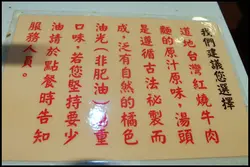 我們建議您選擇
道地台灣紅燒牛肉
麵的原汁原味,湯頭
是遵循古法祕製而
成,泛有自然的橘色
油光(非肥油)
重
口味,若您堅持要少
油請於點餐時告知
服務人員。